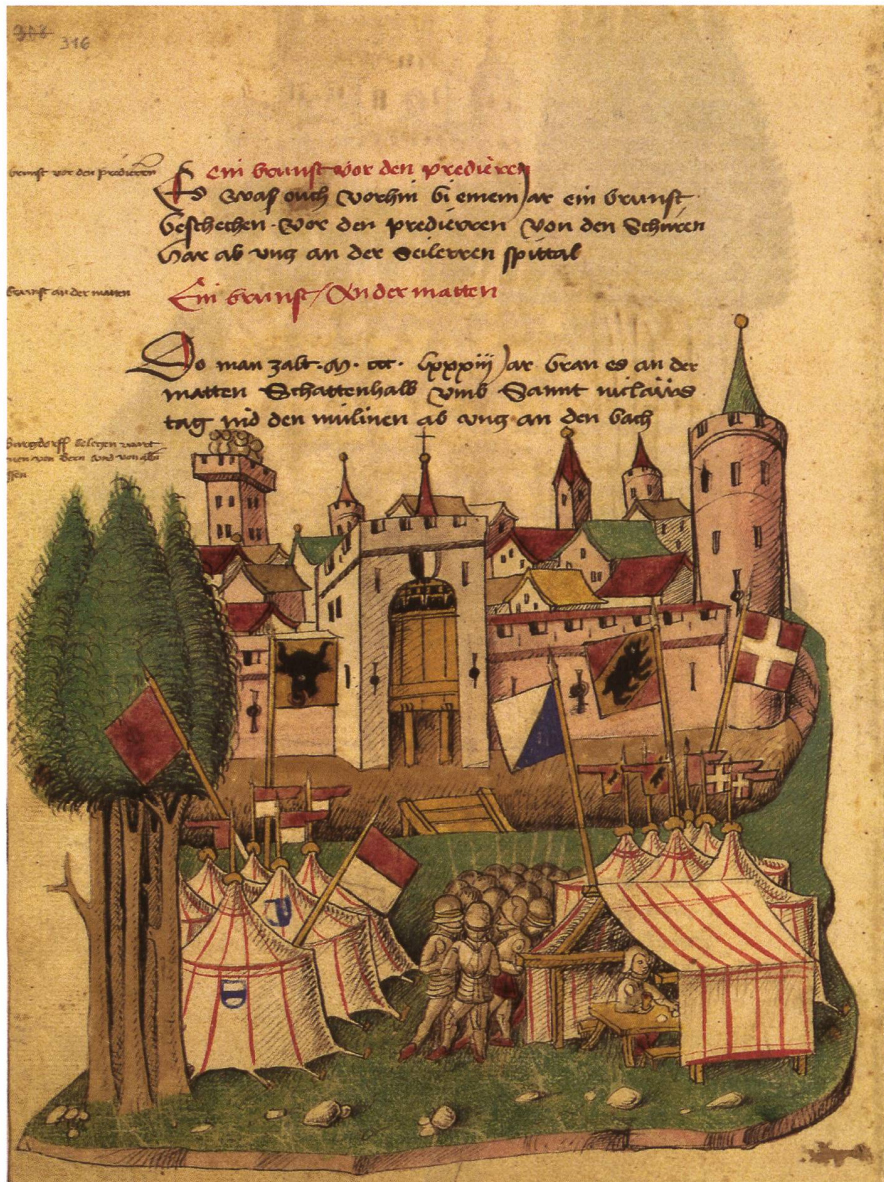 316
brunst vor den predierren
Ein brunst vor den predierren
Es was ouch vorhin bi einem jar ein brunst
beschechen. Vor den predierren von den Schüren
har ab untz an der Seilerren spittal
brunst an der matten
Ein brunst / An der matten
Do man zalt. M. ccc. lxxxiij jar bran es an der
matten Schattenhalb umb Sannt niclaus
tag nid den mülinen ab untz an den bach
burgdorff belegen wart
von bern und von